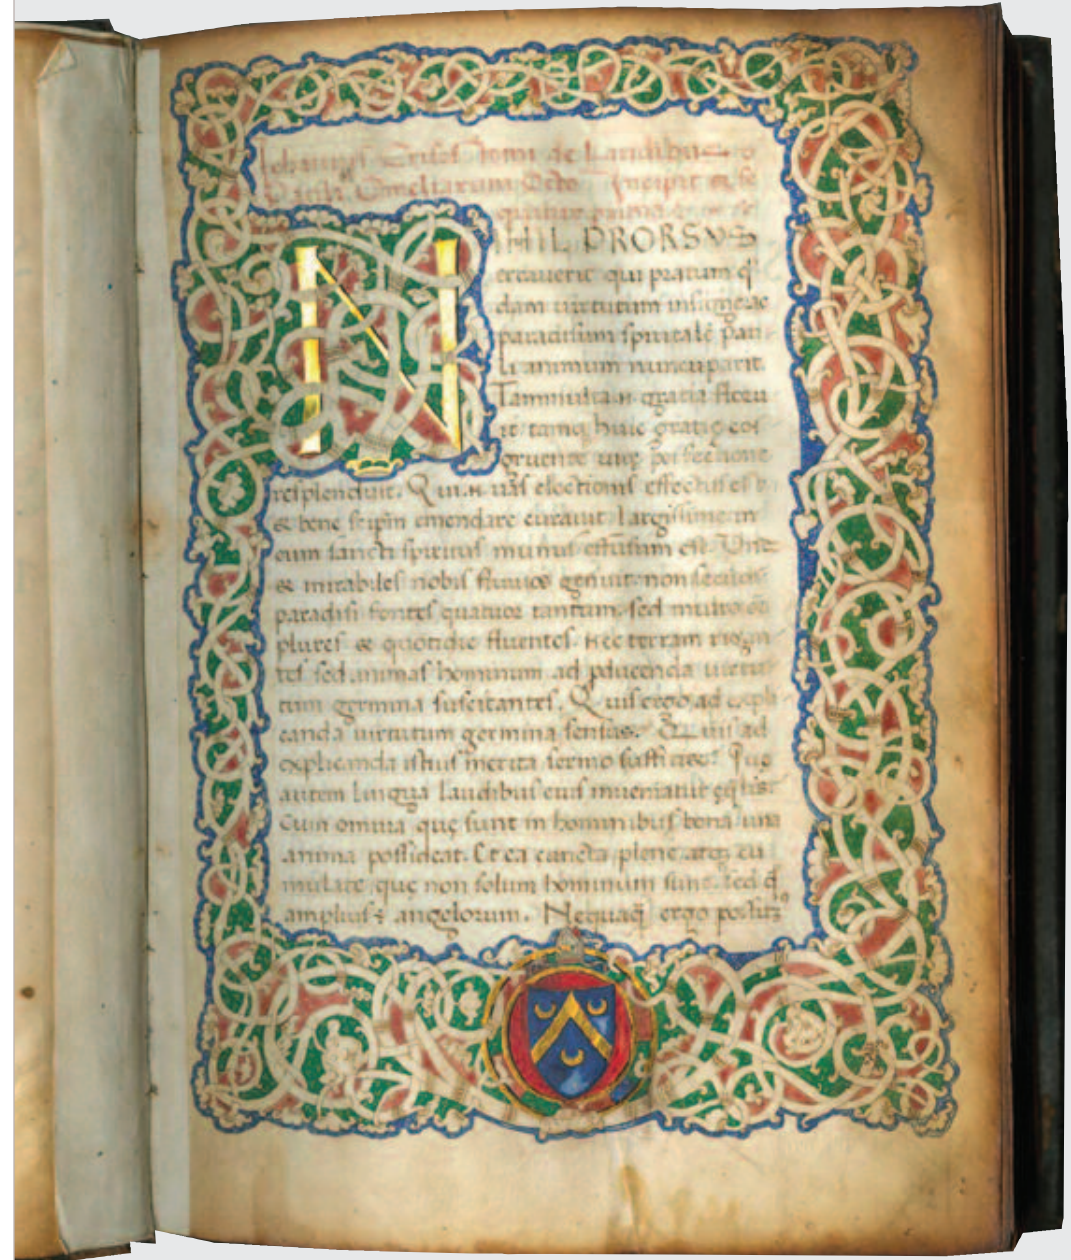 Iohannis Crisostomi de Laudibus
Pauli Omeliarum Octo Incipit et se
quitur prima
NIHIL PRORSVS
erraverit qui pratum q̄
dam uirtutum insigne ac
paradisum spiritalē pau
li animum nuncuparit.
Tam multa .n. gratia floru
it tamq; huic gratię co
gruente uite perfectione
resplenduit. Qui .n. uas electionis effectus est
& bene seipm emendare curauit largissime in
eum sancti spiritus munus effusum est. Unde
& mirabiles nobis fluuios genuit non secus
paradisi fontes quatuor tantum. sed multo
plures & quotidie fluentes. Nec terram rigan
tes sed animas hominum ad pducenda uirtu
tum germina suscitantes. Quis ergo ad expli
canda uirtutum germina sensus. Quis ad
explicanda istius merita sermo sufficiet? Que
autem lingua laudibus eius inueniatur
Cum omnia que sunt in hominibus bona una
anima possideat. Et ea cuncta plene atq; cu
mulate, que non solum hominum sunt. sed q̄
amplius ē angelorum. Nequaq̄ ergo